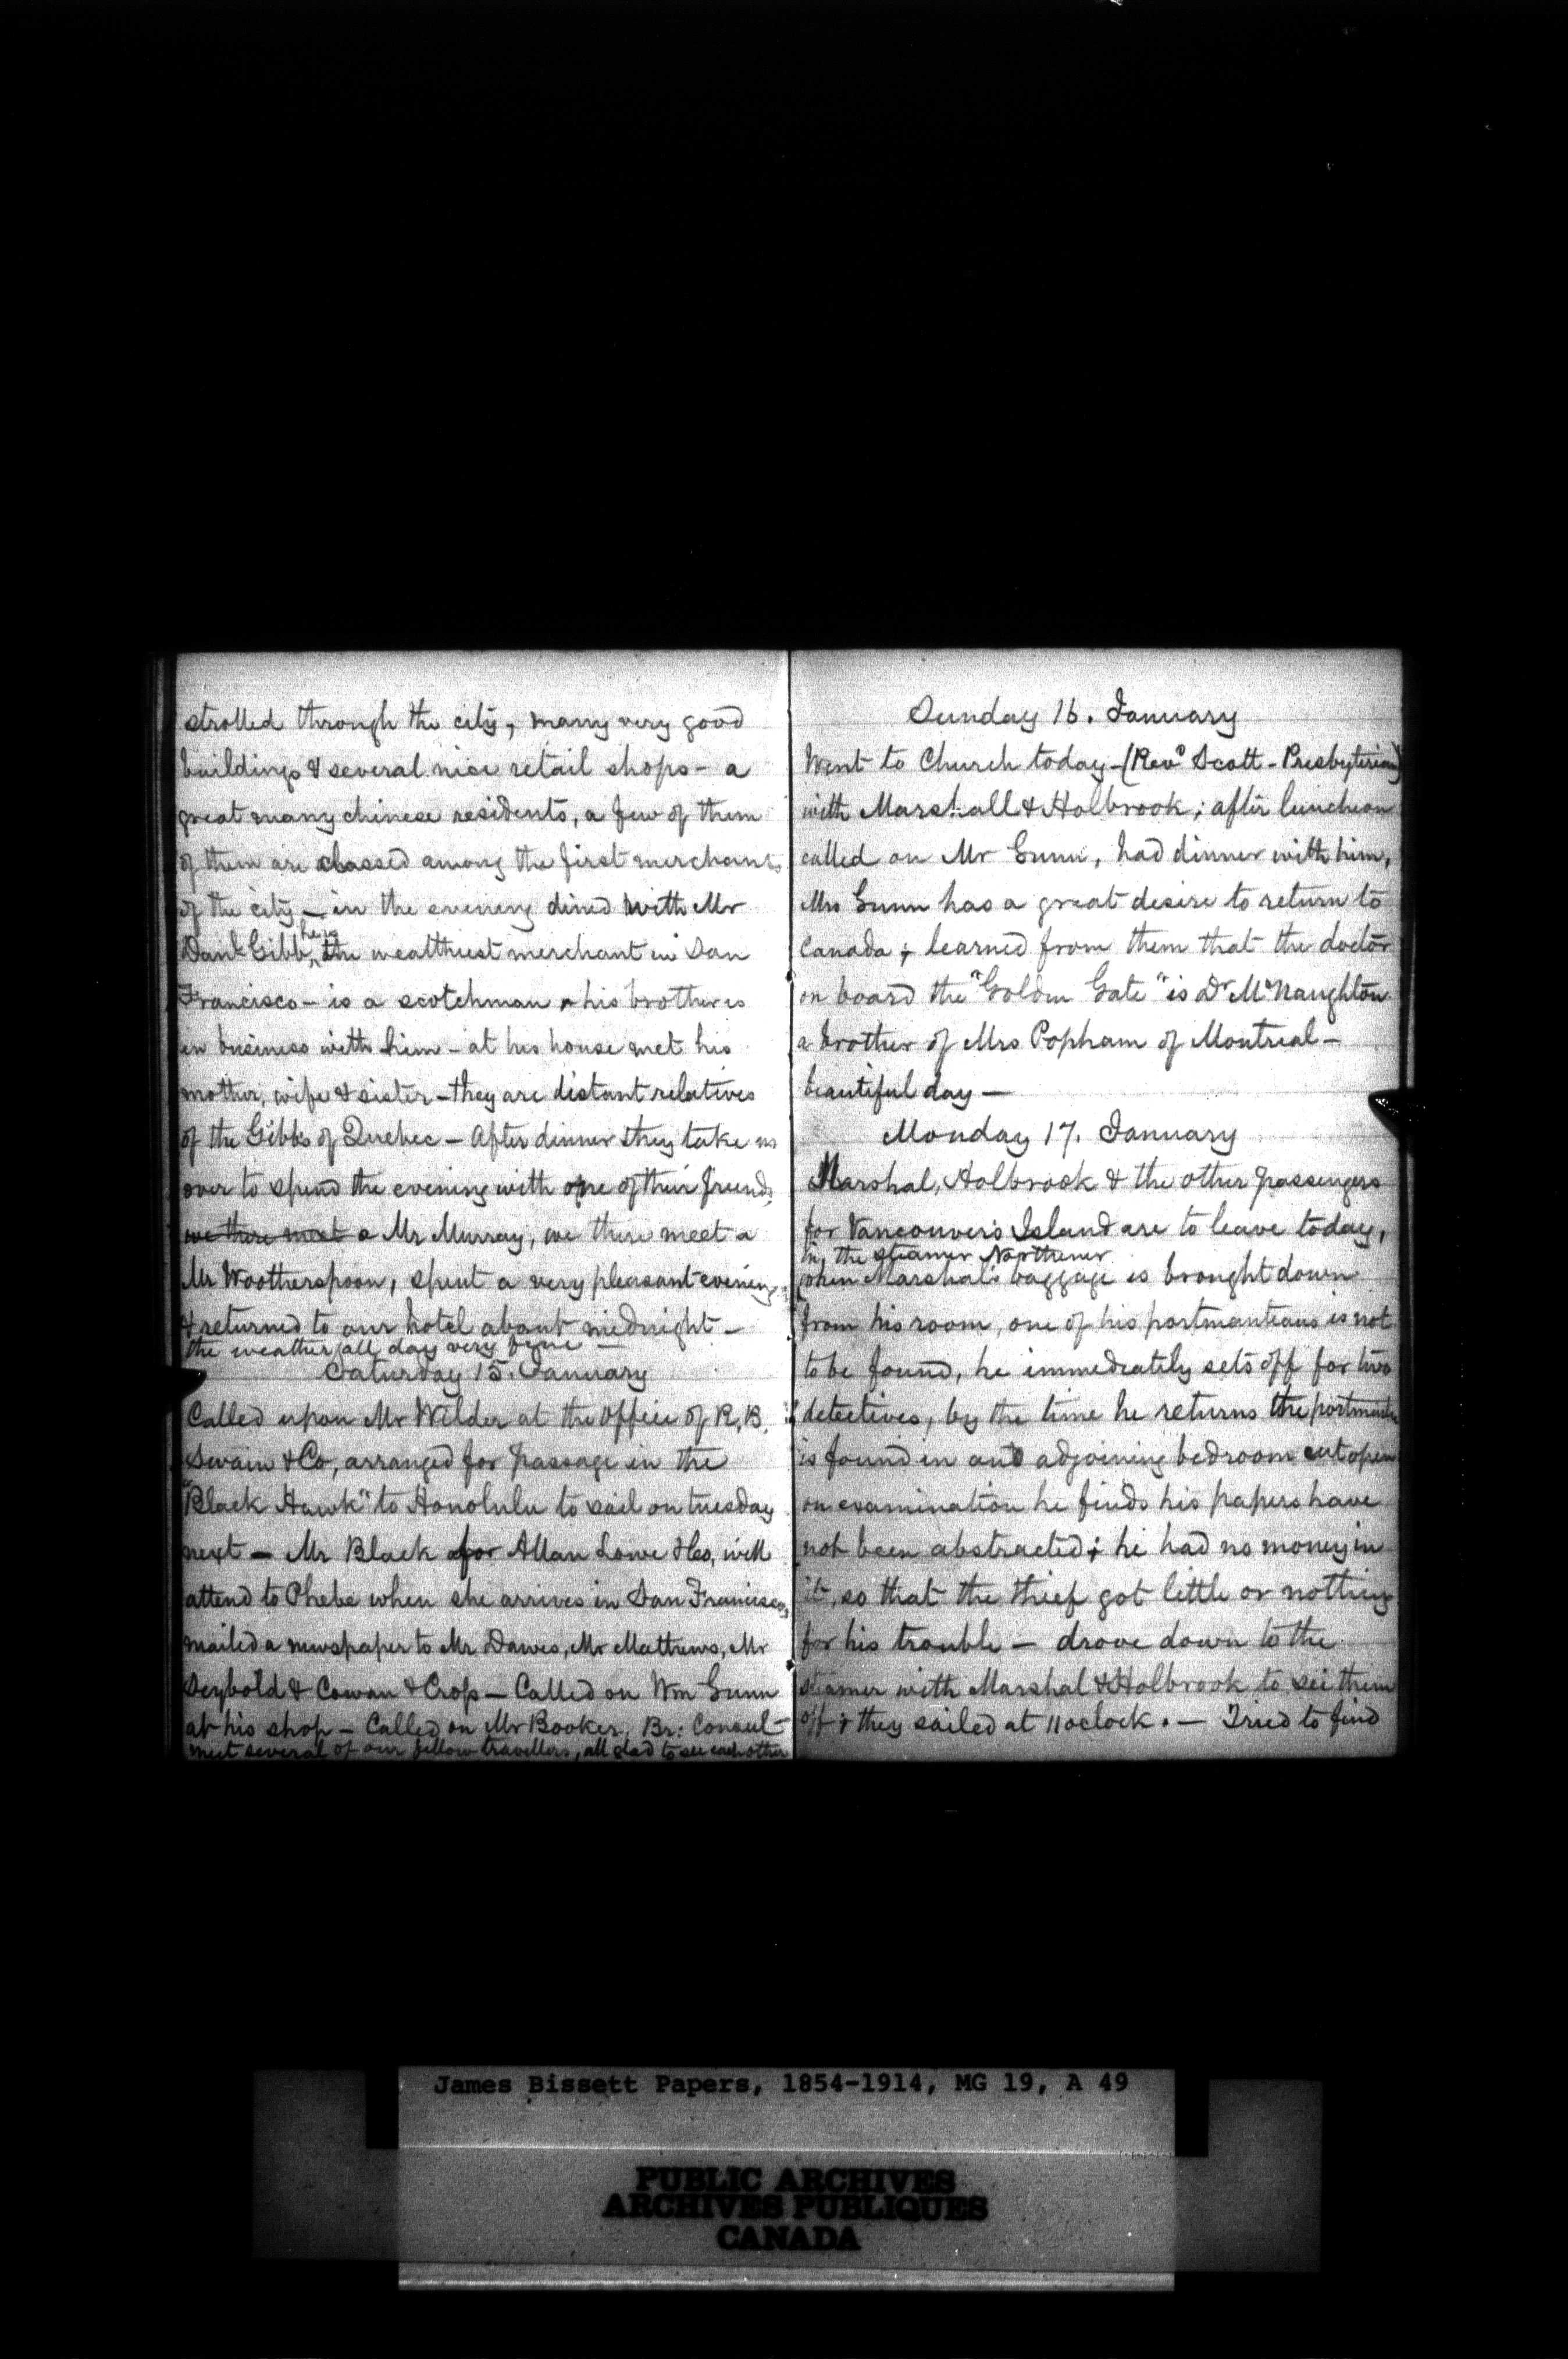 strolled through the city, many very good
buildings & several nice retail shops - a
great many chinese residents, a few of them
of them are classed among the first merchants
of the city - in the evening dined with Mr
he is
Danl Gibb, the wealthiest merchant in San
Francisco - is a scotchman & his brother is
in business with him - at his house met his
mother, wife & sister - they are distant relatives
of the Gibbs of Quebec - After dinner they take us
over to spend the evening with one of their friends,
we there meet a Mr Murray, we there meet a
Mr Wootherspoon, spent a very pleasant evening
& returned to our hotel about midnight -
the weather all day very fine -
Saturday 15. January
Called upon Mr Wilder at the office of R.B.
Swain & Co, arranged for passage in the
"Black Hawk" to Honolulu to sail on tuesday
next - Mr Black for Allan Lowe & Co, will
attend to Phebe when she arrives in San Francisco,
mailed a newspaper to Mr Dawes, Mr Mathews, Mr
Seybold & Cowan & Crop - Called on Wm Gunn
at his shop - Called on Mr Booker, Br: Consul -
meet several of our fellow travellers, all glad to see each other
Sunday 16. January
Went to Church today - (Revd Scott - Presbyterian)
with Marshall & Holbrook; after luncheon
called on Mr Gunn, had dinner with him,
Mrs Gunn has a great desire to return to
Canada; learned from them that the doctor
on board the "Golden Gate" is Dr McNaughton
a brother of Mrs Popham of Montreal -
beautiful day -
Monday 17. January
Marshal, Holbrook & the other passengers
for Vancouver's Island are to leave today,
in the steamer Northerner
when Marshal's baggage is brought down
from his room, one of his portmanteaus is not
to be found, he immediately sets off for two
detectives, by the time he returns the portmanteau
is found in and adjoining bedroom cut open
on examination he finds his papers have
not been abstracted; he had no money in
it, so that the thief got little or nothing
for his trouble - drove down to the
steamer with Marshal & Holbrook to see them
off & they sailed at 11 oclock. - Tried to find
James Bissett Papers, 1854-1914, MG 19, A 49
PUBLIC ARCHIVES
ARCHIVES PUBLIQUES
CANADA